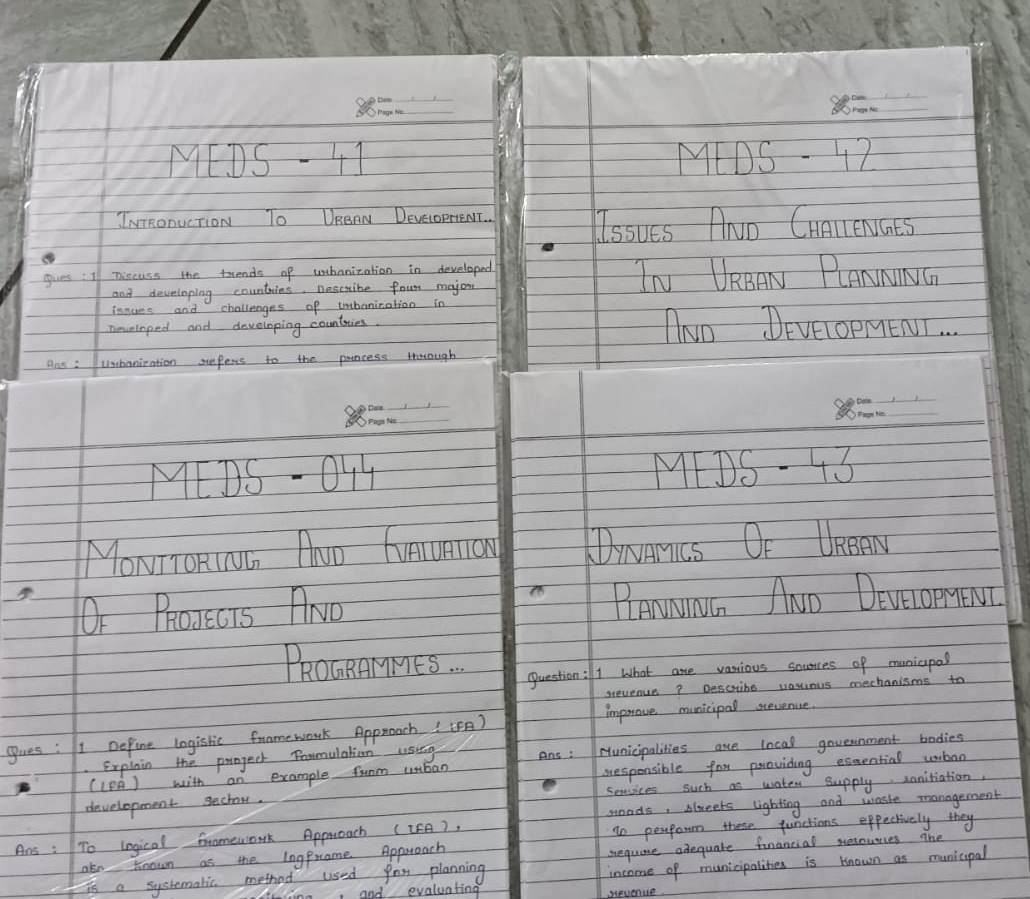 Date
Page No.
MEDS - 41
INTRODUCTION TO URBAN DEVELOPMENT..
Ques : 1 Discuss the trends of urbanization in developed
and developing countries. Describe four major
issues and challenges of urbanization in
Developed and developing countries.
Ans : Urbanization refers to the process through
Date
Page No.
MEDS - 42
ISSUES AND CHALLENGES
IN URBAN PLANNING
AND DEVELOPMENT...
Date
Page No.
MEDS - 044
MONITORING AND EVALUATION
OF PROJECTS AND
PROGRAMMES...
Ques : 1 Define logistic framework Approach (LFA)
. Explain the project Formulation using
(LFA) with an example from urban
development sector.
Ans : To logical framework Approach (LFA),
also known as the logframe Approach
is a systematic method used for planning
, and evaluating
Date
Page No.
MEDS - 43
DYNAMICS OF URBAN
PLANNING AND DEVELOPMENT.
Question : 1 What are various sources of municipal
revenue ? Describe various mechanisms to
improve municipal revenue.
Ans : Municipalities are local government bodies
responsible for providing essential urban
Services such as water supply, sanitiation,
roads, streets lighting and waste management
To perform these functions effectively they
require adequate financial resources The
income of municipalities is known as municipal
revenue